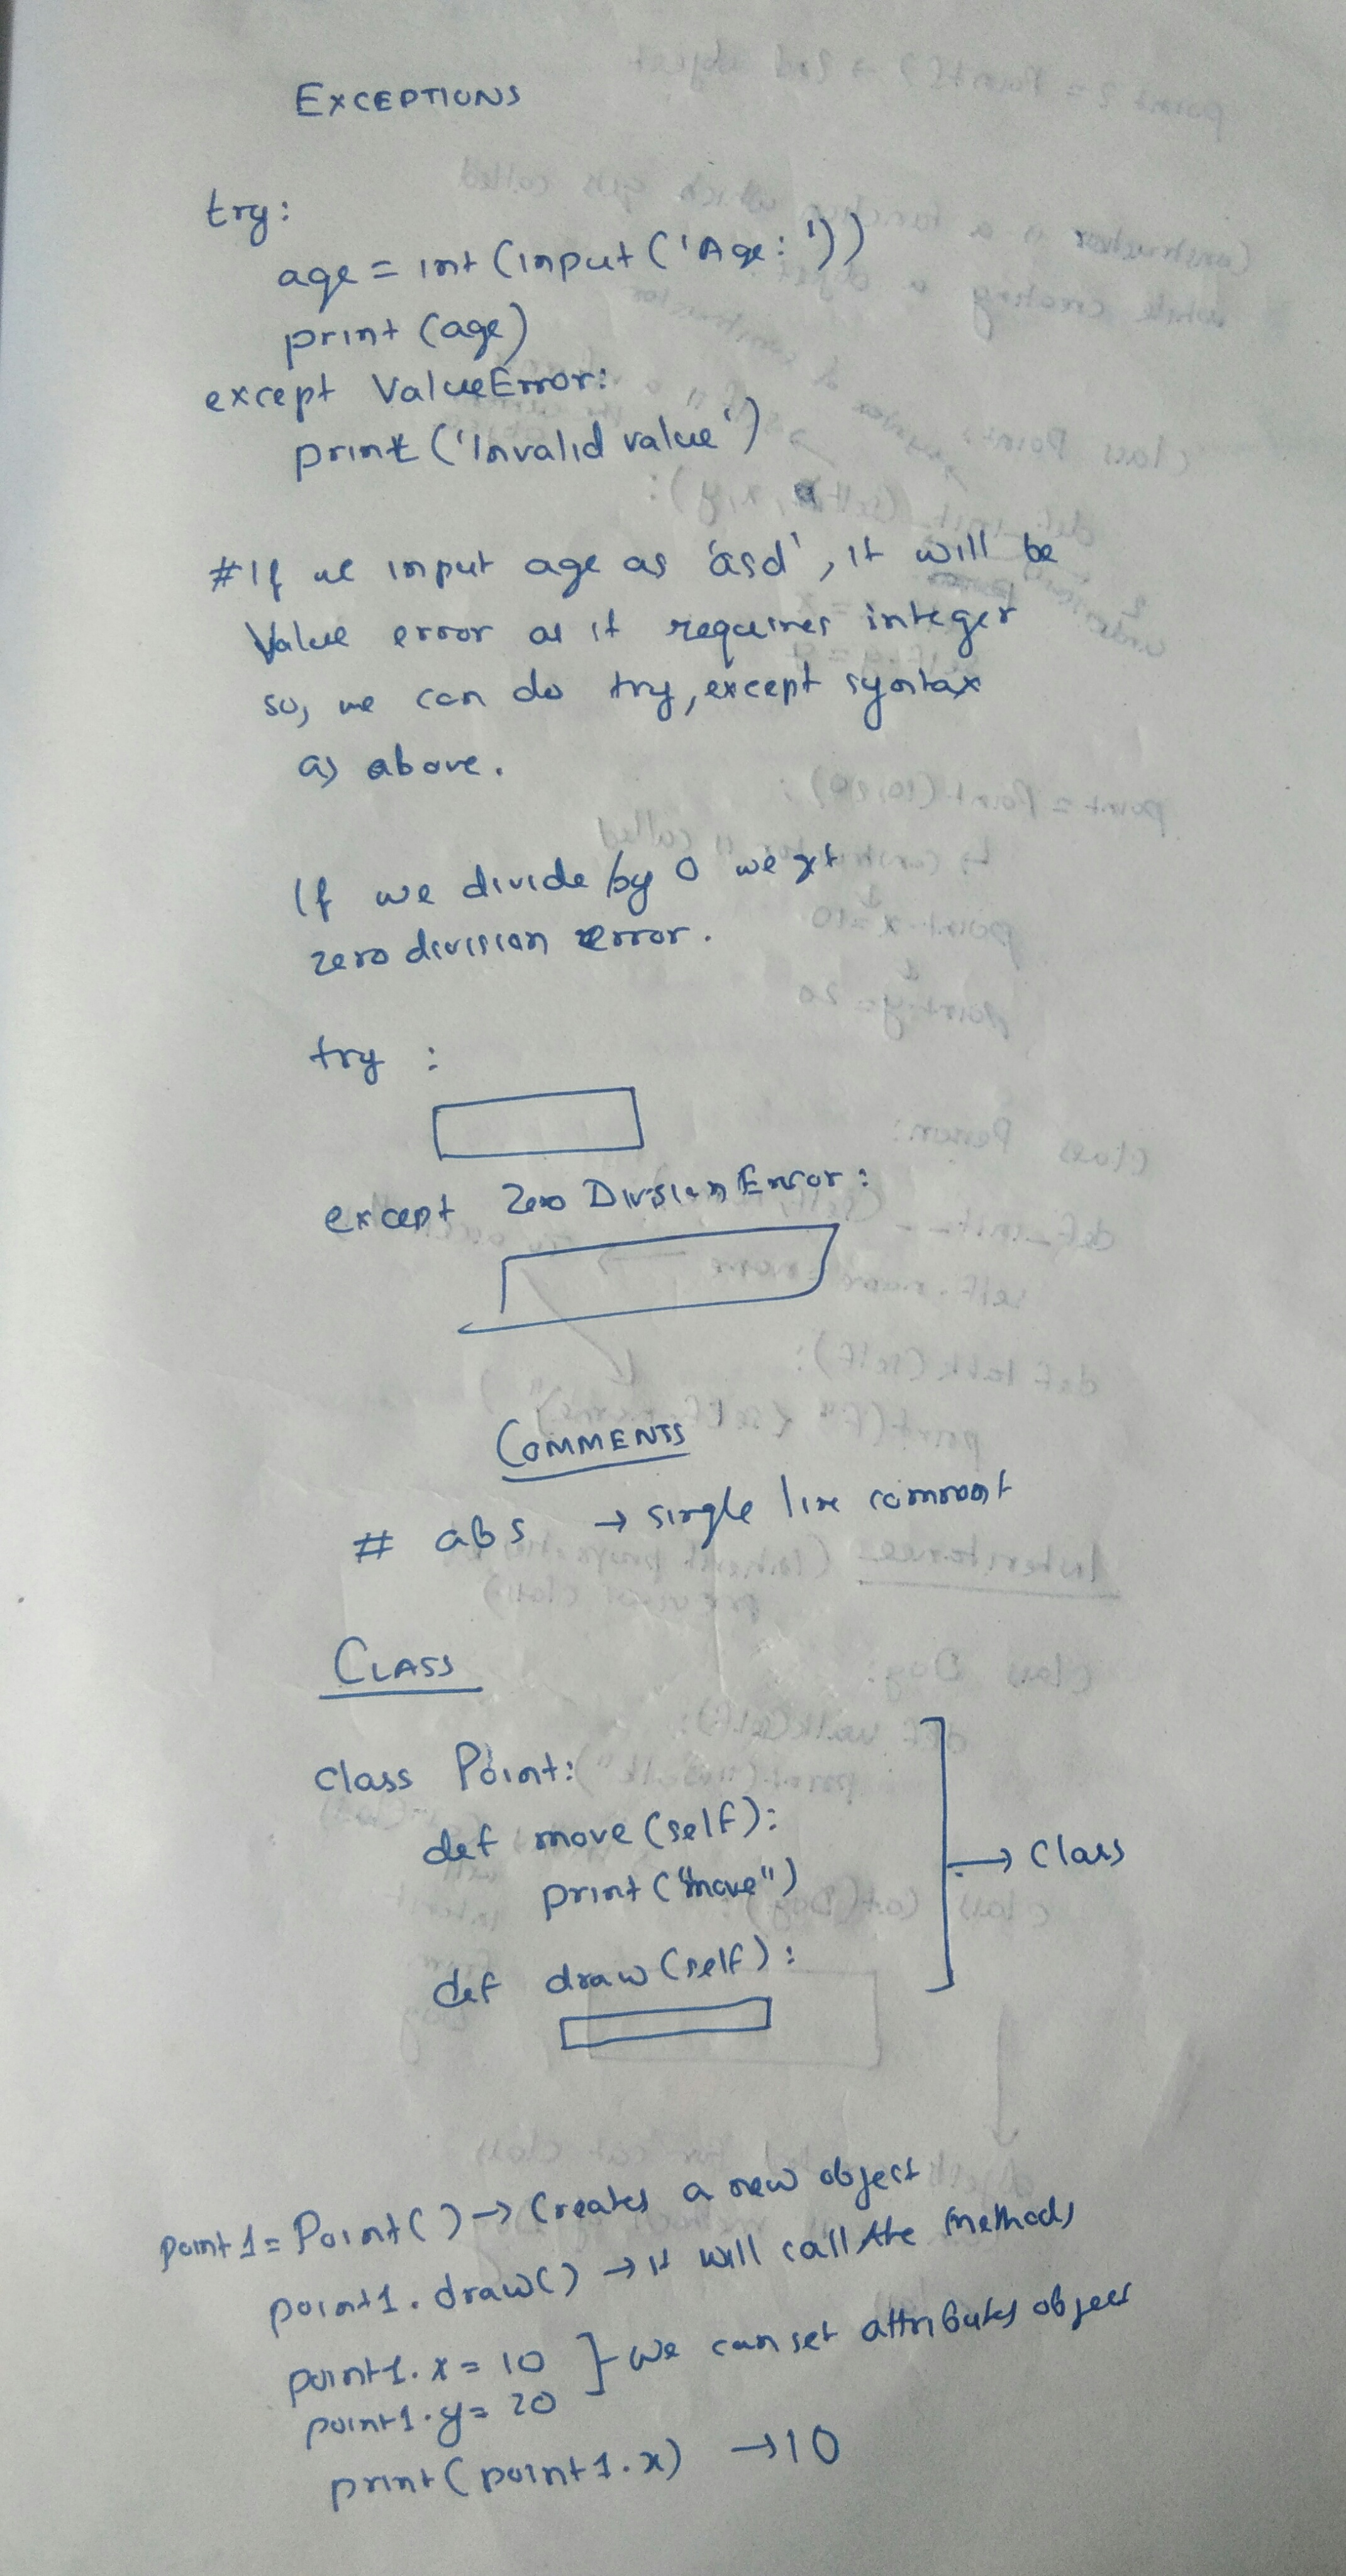 EXCEPTIONS
try:
age = int (input ('Age: '))
print (age)
except ValueError:
print ('Invalid value')
#If we input age as 'asd', it will be
Value error as it requires integer
so, we can do try, except syntax
as above.
If we divide by 0 we get
zero division error.
try :
except ZeroDivisionError:
COMMENTS
# abs → single line comment
CLASS
class Point:
def move (self):
print ("move")
→ Class
def draw (self):
point1 = Point() → Creates a new object
point1.draw() → it will call the methods
point1.x = 10 } we can set attributes object
point1.y = 20
print (point1.x) → 10